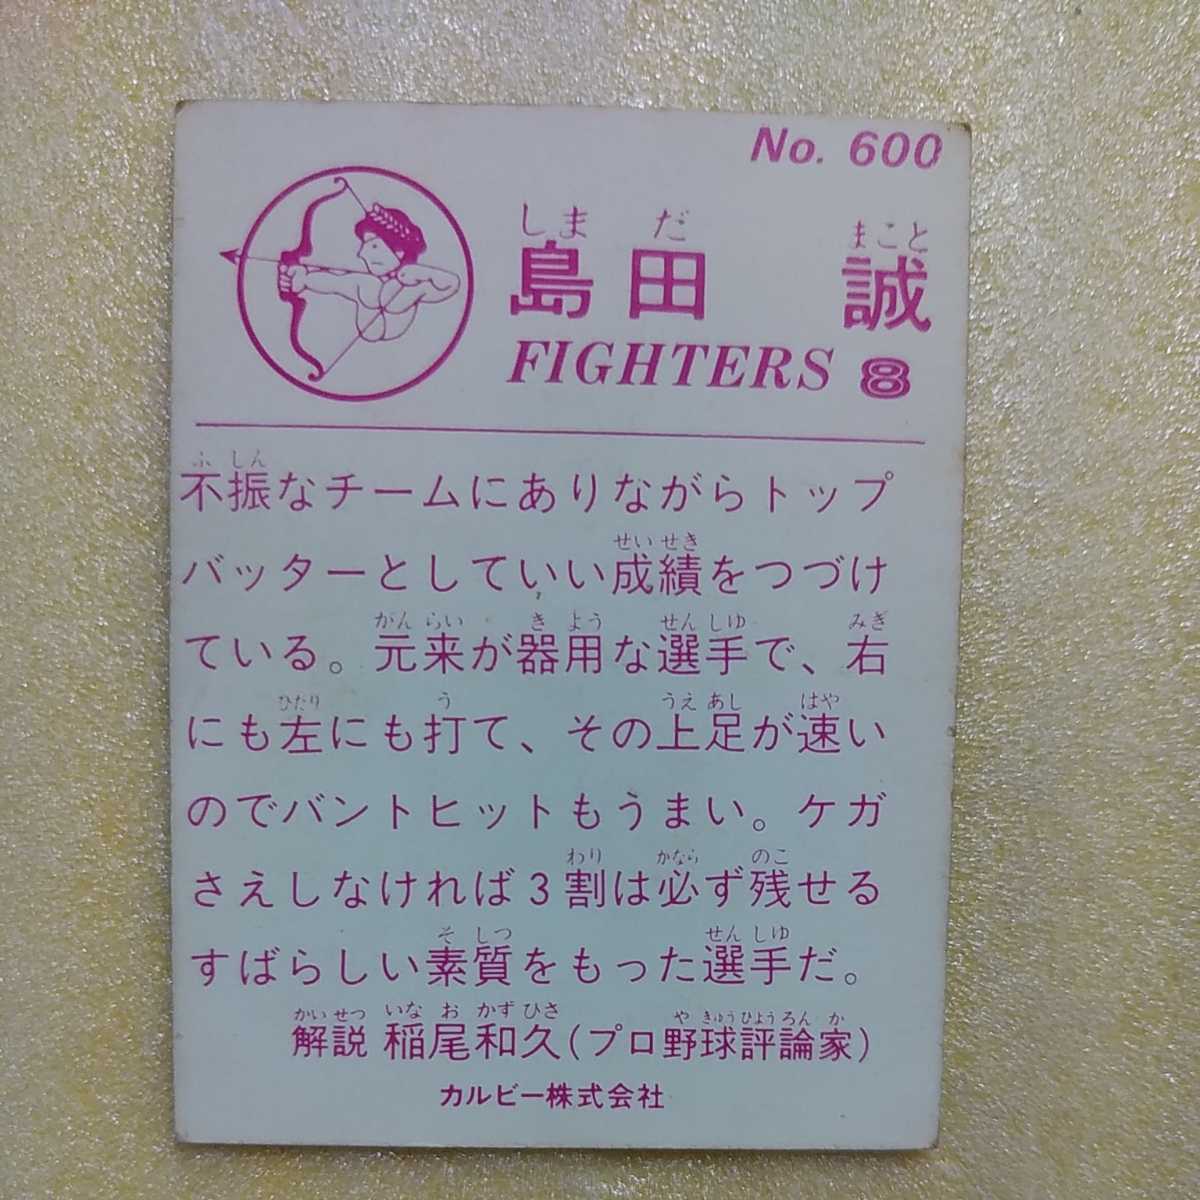 No. 600
しまだ まこと
島田 誠
FIGHTERS 8
ふしん
不振なチームにありながらトップ
せいせき
バッターとしていい成績をつづけ
がんらい きよう せんしゆ みぎ
ている。元来が器用な選手で、右
ひだり う うえあし はや
にも左にも打て、その上足が速い
のでバントヒットもうまい。ケガ
わり かなら のこ
さえしなければ3割は必ず残せる
そしつ せんしゆ
すばらしい素質をもった選手だ。
かいせつ いなお かずひさ やきゅうひようろんか
解説 稲尾和久(プロ野球評論家)
カルビー株式会社